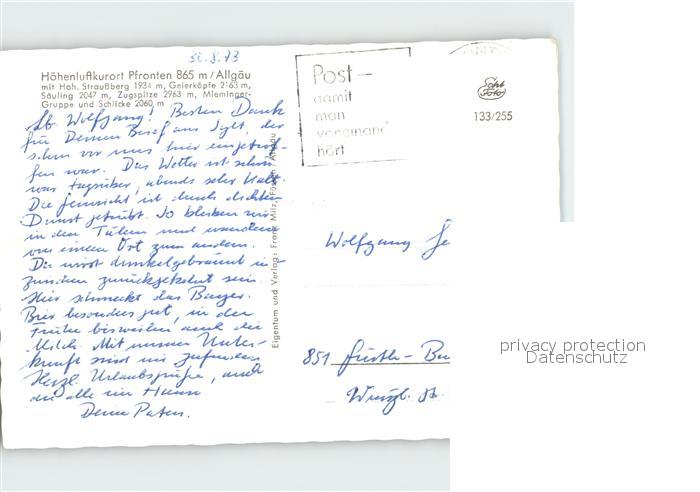 31.8.73
Höhenluftkurort Pfronten 865 m/Allgäu
mit Hoh. Straußberg 1934 m, Geierköpfe 2163 m,
Säuling 2047 m, Zugspitze 2963 m, Mieminger-
Gruppe und Schlicke 2060 m
Lb. Wolfgang! Besten Dank
für Deinen Brief aus Sylt, der
schon vor uns hier eingetrof-
fen war. Das Wetter ist schön
war tagsüber, abends sehr kalt.
Die Fernsicht ist durch dichten
Dunst getrübt. So bleiben wir
in den Tälern und wandern
von einem Ort zum andern.
Du wirst dunkelgebräunt in-
zwischen zurückgekehrt sein.
Hier schmeckt das Bayer.
Bier besonders gut, in der
Frühe bisweilen auch die
Milch. Mit unserer Unter-
kunft sind wir zufrieden.
Herzl. Urlaubsgrüße, auch
an alle im Hause
Deine Paten.
Eigentum und Verlag: Franz Milz, Füssen/Allgäu
Post –
damit
man
voneinander
hört
Echt
Foto
133/255
Wolfgang
851 Fürth-Bu
Würzb. St.
privacy protection
Datenschutz